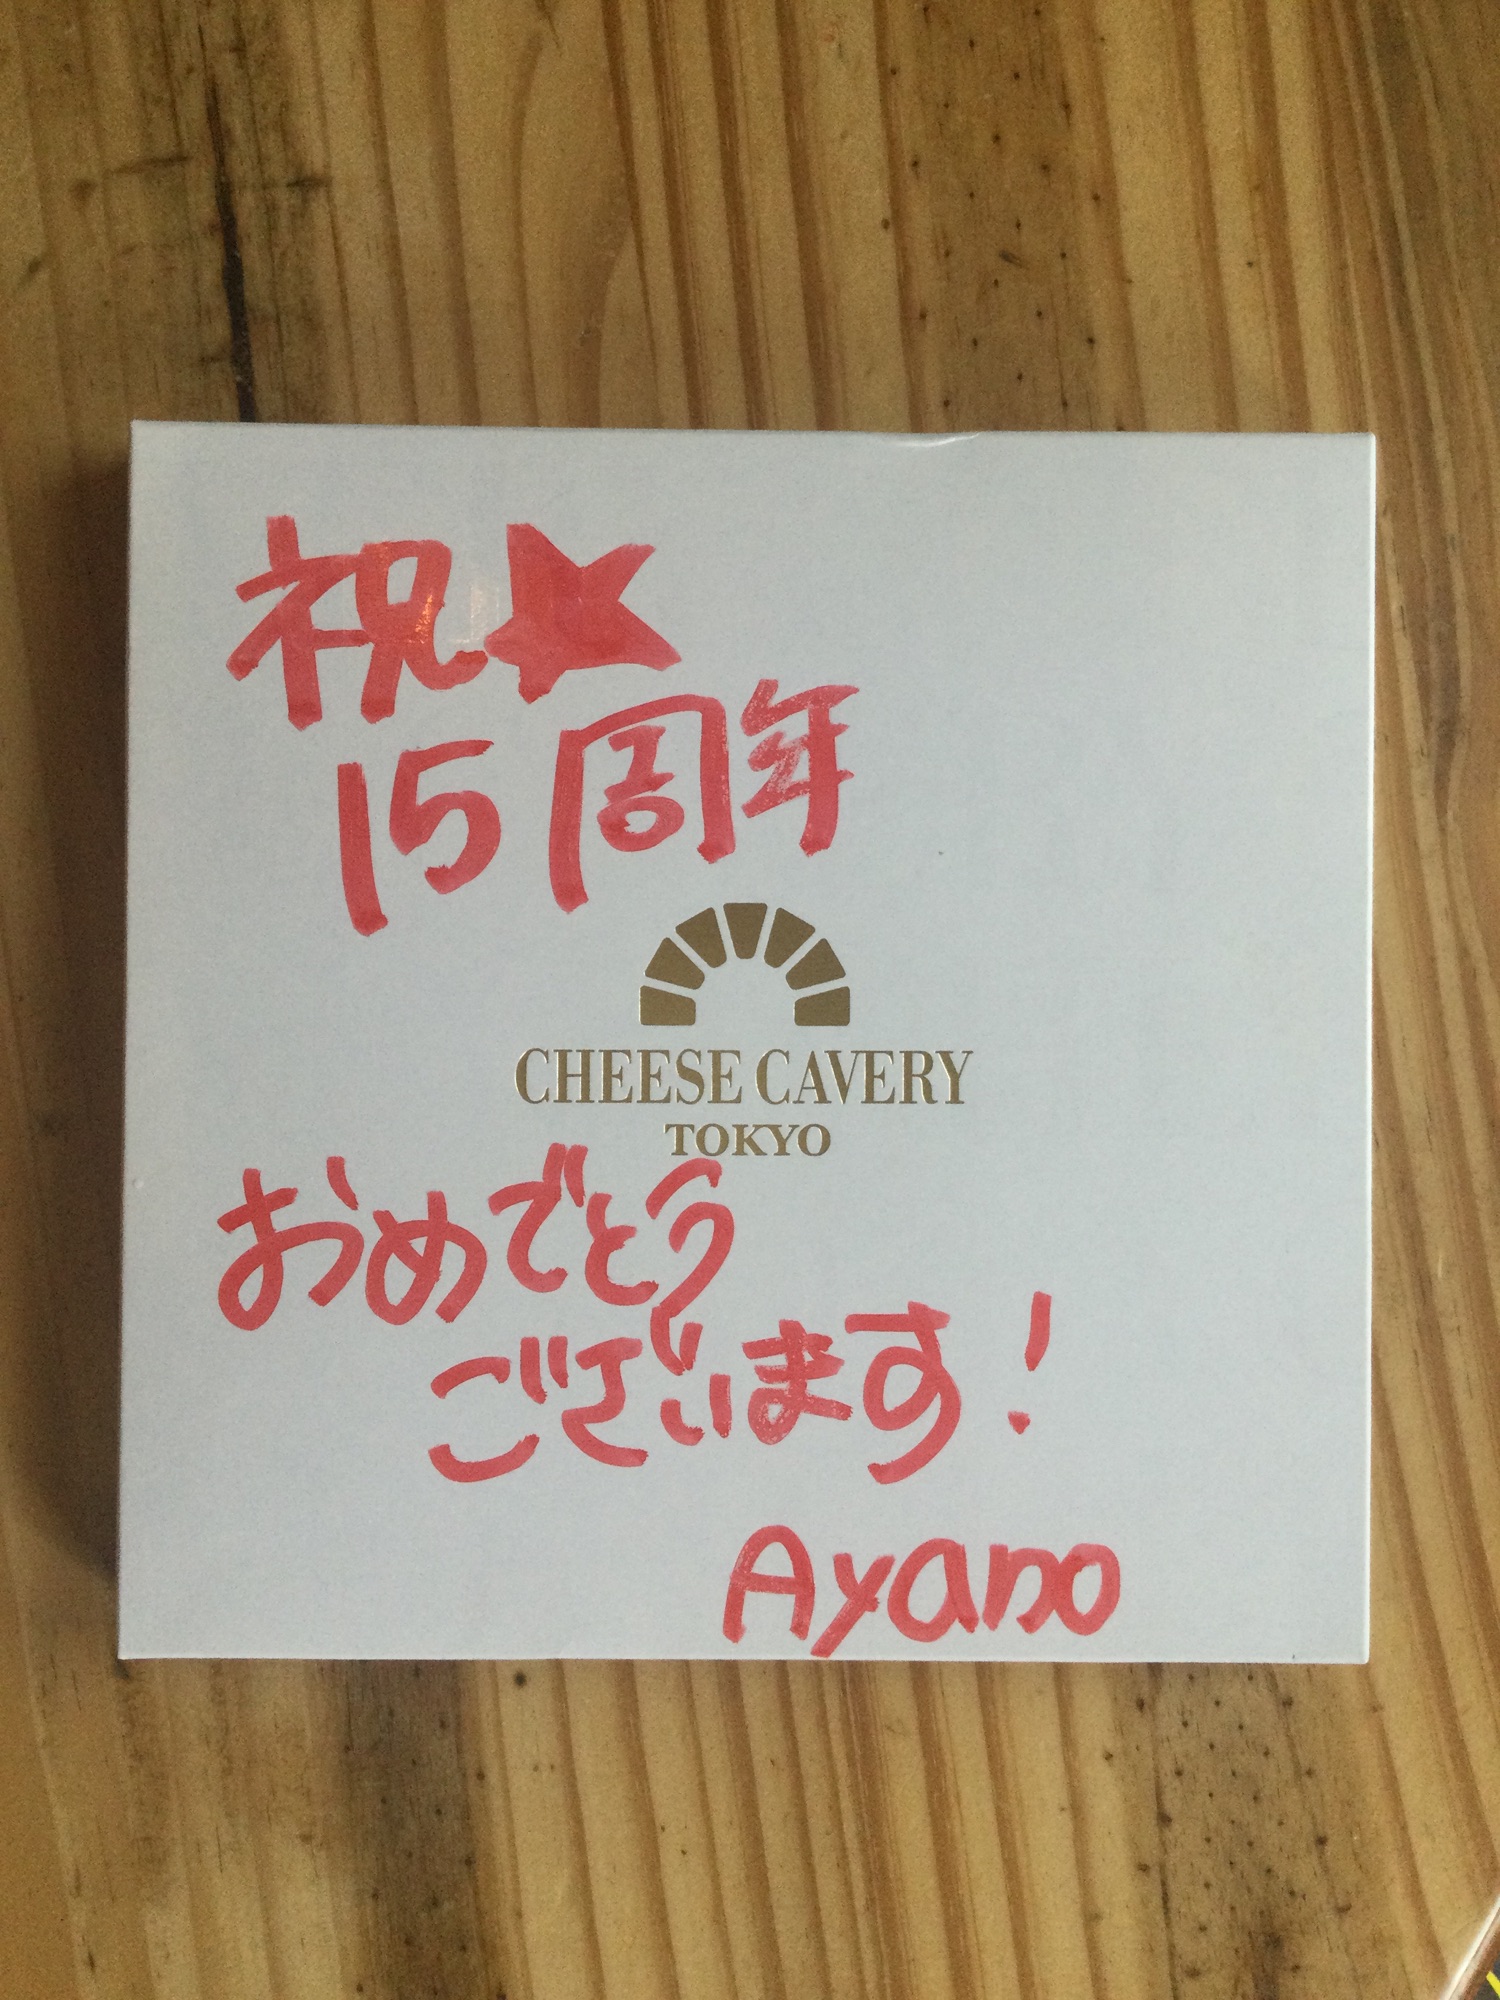 祝★
15周年
CHEESE CAVERY
TOKYO
おめでとう
ございます!
Ayano